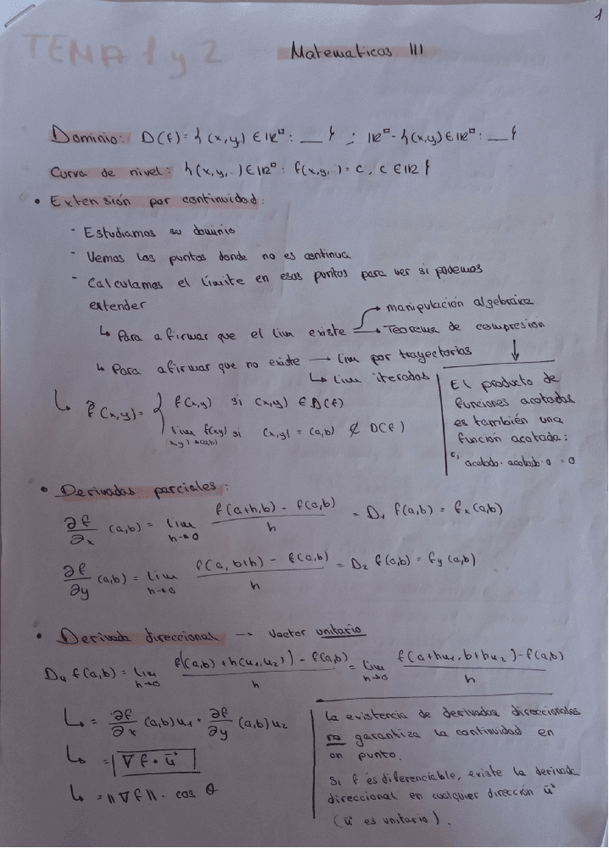 1
TEMA 1 y 2
Matematicas III
Dominio: D(f) = { (x,y) ∈ ℝⁿ : __ } ; ℝⁿ - { (x,y) ∈ ℝⁿ : __ }
Curva de nivel: { (x,y, ) ∈ ℝⁿ : f(x,y, ) = c, c ∈ ℝ }
• Extensión por continuidad:
- Estudiamos su dominio
- Vemos los puntos donde no es continua
- Calculamos el límite en esos puntos para ver si podemos
extender
↳ Para afirmar que el lim existe → manipulación algebraica
→ Teorema de compresión
↳ Para afirmar que no existe → lim por trayectorias
↳ lim iterados
↳ f̃(x,y) = { f(x,y) si (x,y) ∈ D(f)
lim f(x,y) si (x,y) = (a,b) ∉ D(f)
(x,y)→(a,b)
El producto de
funciones acotadas
es también una
función acotada:
acotado · acotado · 0 = 0
• Derivadas parciales:
∂f/∂x (a,b) = lim h→0 f(a+h,b) - f(a,b) / h = D₁ f(a,b) = fx (a,b)
∂f/∂y (a,b) = lim h→0 f(a,b+h) - f(a,b) / h = D₂ f(a,b) = fy (a,b)
• Derivada direccional → Vector unitario
Du f(a,b) = lim h→0 f((a,b) + h(u₁,u₂)) - f(a,b) / h = lim h→0 f(a+hu₁, b+hu₂) - f(a,b) / h
↳ = ∂f/∂x (a,b) u₁ + ∂f/∂y (a,b) u₂
↳ = ∇f · ū
↳ = ||∇f|| · cos θ
La existencia de derivadas direccionales
no garantiza la continuidad en
un punto.
Si f es diferenciable, existe la derivada
direccional en cualquier dirección ū
(ū es unitario).